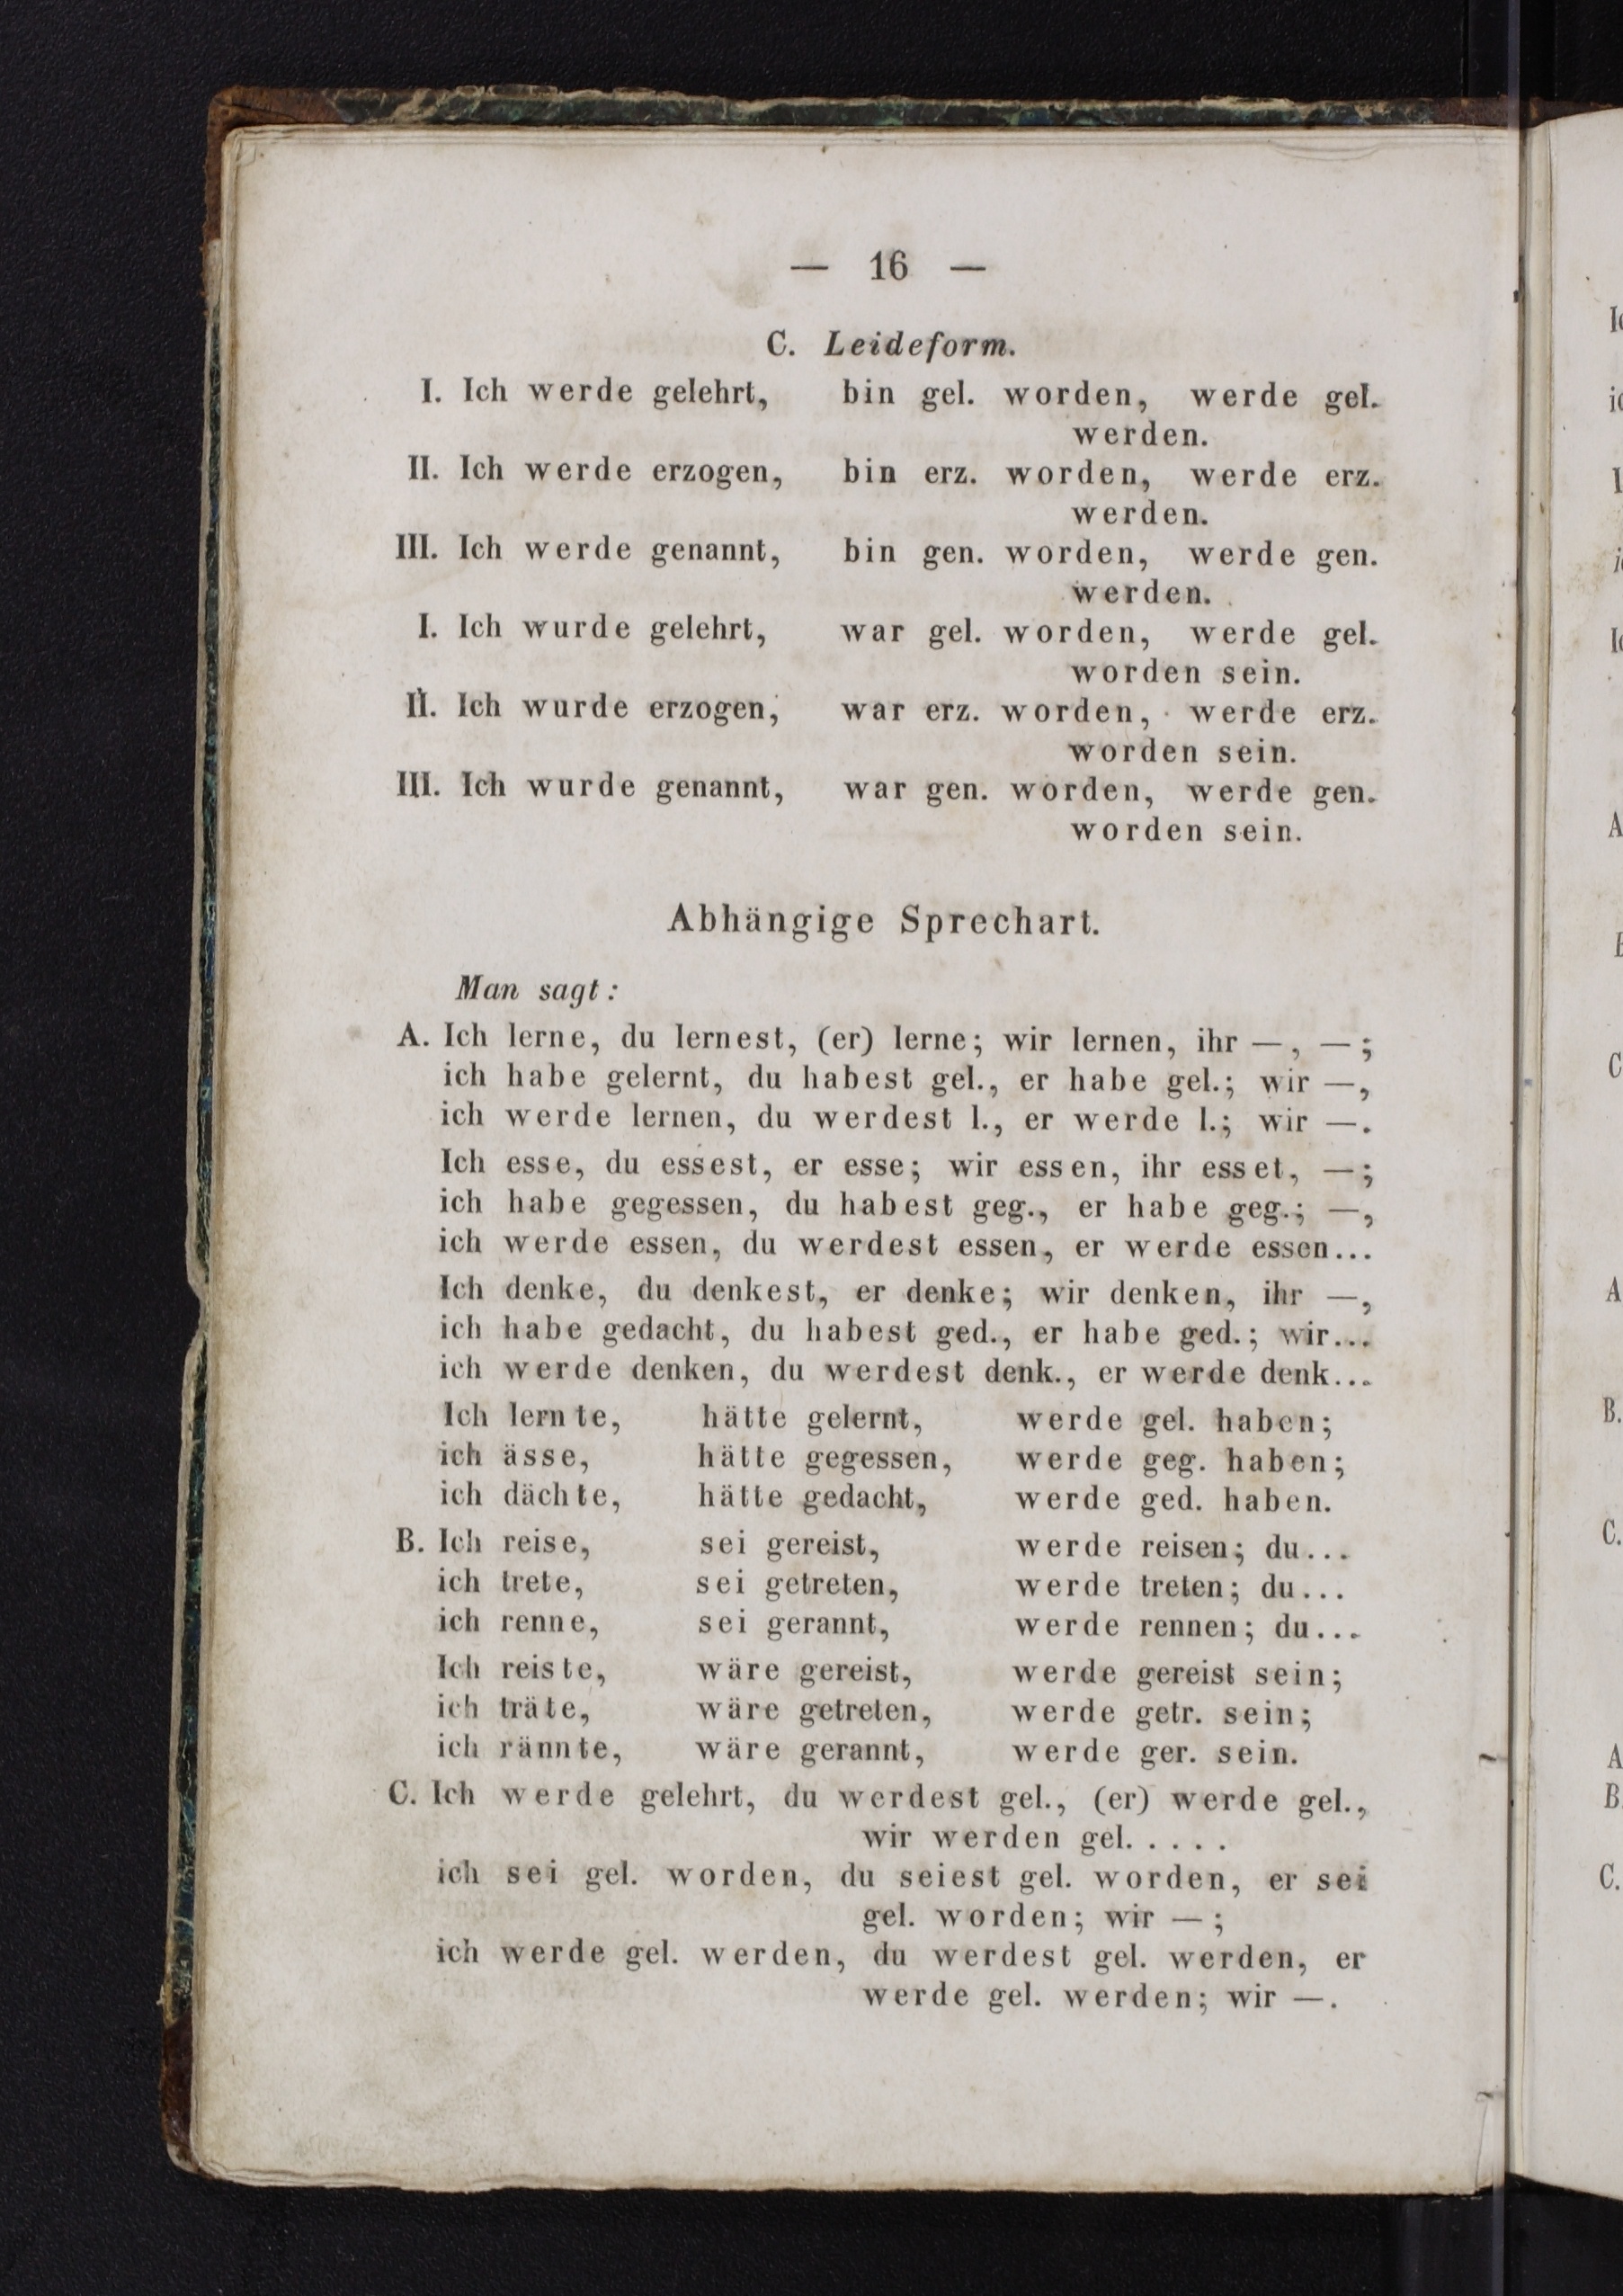 — 16 —
C. Leideform.
I. Ich werde gelehrt, bin gel. worden, werde gel.
werden.
II. Ich werde erzogen, bin erz. worden, werde erz.
werden.
III. Ich werde genannt, bin gen. worden, werde gen.
werden.
I. Ich wurde gelehrt, war gel. worden, werde gel.
worden sein.
II. Ich wurde erzogen, war erz. worden, werde erz.
worden sein.
III. Ich wurde genannt, war gen. worden, werde gen.
worden sein.
Abhängige Sprechart.
Man sagt:
A. Ich lerne, du lernest, (er) lerne; wir lernen, ihr —, —;
ich habe gelernt, du habest gel., er habe gel.; wir —,
ich werde lernen, du werdest l., er werde l.; wir —.
Ich esse, du essest, er esse; wir essen, ihr esset, —;
ich habe gegessen, du habest geg., er habe geg.; —,
ich werde essen, du werdest essen, er werde essen...
Ich denke, du denkest, er denke; wir denken, ihr —,
ich habe gedacht, du habest ged., er habe ged.; wir...
ich werde denken, du werdest denk., er werde denk...
Ich lernte, hätte gelernt, werde gel. haben;
ich ässe, hätte gegessen, werde geg. haben;
ich dächte, hätte gedacht, werde ged. haben.
B. Ich reise, sei gereist, werde reisen; du...
ich trete, sei getreten, werde treten; du...
ich renne, sei gerannt, werde rennen; du...
Ich reiste, wäre gereist, werde gereist sein;
ich träte, wäre getreten, werde getr. sein;
ich rännte, wäre gerannt, werde ger. sein.
C. Ich werde gelehrt, du werdest gel., (er) werde gel.,
wir werden gel. . . . .
ich sei gel. worden, du seiest gel. worden, er sei
gel. worden; wir —;
ich werde gel. werden, du werdest gel. werden, er
werde gel. werden; wir —.